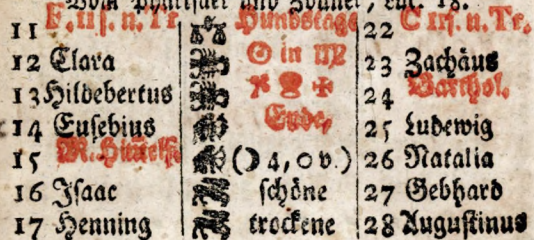 Vom Pharisäer und Zöllner, Luc. 18.
11 F. 11 s. n. Tr. Hundstage 22 C 11 s. n. Tr.
12 Clara ☉ in ♍ 23 Zachäus
13 Hildebertus 24 Barthol.
14 Eusebius Ende, 25 Ludewig
15 M. Himelf. (☽ 4, 0 v.) 26 Natalia
16 Isaac schöne 27 Gebhard
17 Henning trockene 28 Augustinus